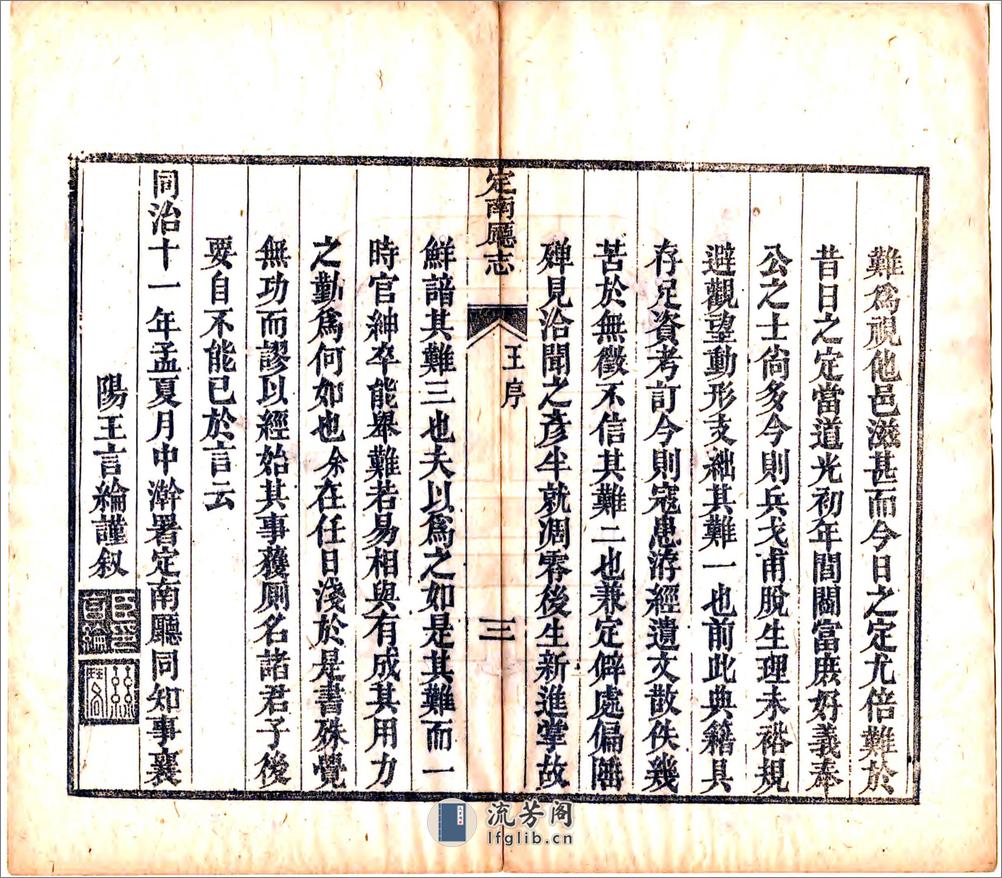 難爲視他邑滋甚而今日之定尤倍難於
昔日之定當道光初年閭閻富庶好義奉
公之士尙多今則兵戈甫脫生理未裕規
避觀望動形支絀其難一也前此典籍具
存足資考訂今則寇患洊經遺文散佚幾
苦於無徵不信其難二也兼定僻處偏隅
殫見洽聞之彥半就凋零後生新進掌故
定南廳志
王序
三
鮮諳其難三也夫以爲之如是其難而一
時官紳卒能舉難若易相與有成其用力
之勤爲何如也余在任日淺於是書殊覺
無功而謬以經始其事獲厠名諸君子後
要自不能已於言云
同治十一年孟夏月中澣署定南廳同知事襄
陽王言綸謹叙
流芳阁
lfglib.cn